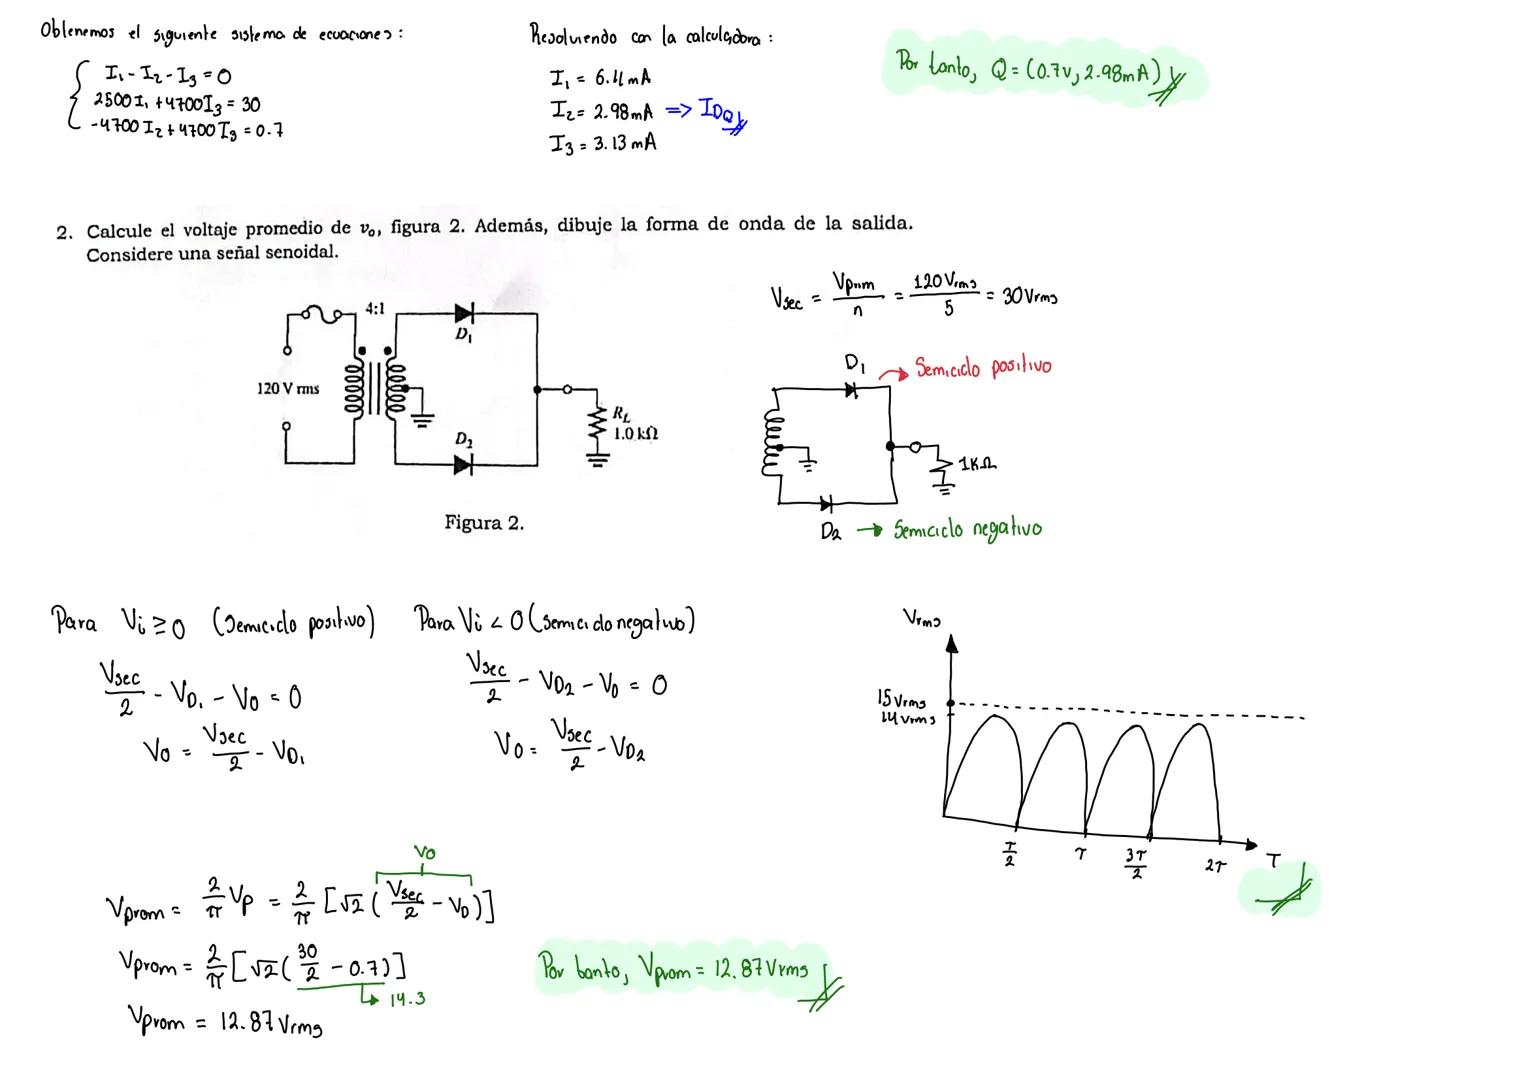 Obtenemos el siguiente sistema de ecuaciones:
I₁ - I₂ - I₃ = 0
2500 I₁ + 4700 I₃ = 30
-4700 I₂ + 4700 I₃ = 0.7
Resolviendo con la calculadora:
I₁ = 6.11 mA
I₂ = 2.98 mA => I_DQ
I₃ = 3.13 mA
Por tanto, Q = (0.7v, 2.98mA)
2. Calcule el voltaje promedio de v₀, figura 2. Además, dibuje la forma de onda de la salida.
Considere una señal senoidal.
4:1
D₁
120 V rms
D₂
R_L
1.0 kΩ
Figura 2.
Vsec = Vprim / n = 120 Vrms / 5 = 30 Vrms
D₁ → Semiciclo positivo
1KΩ
D₂ → Semiciclo negativo
Para Vi ≥ 0 (Semiciclo positivo)
Vsec / 2 - V_D₁ - Vo = 0
Vo = Vsec / 2 - V_D₁
Para Vi < 0 (semiciclo negativo)
Vsec / 2 - V_D2 - Vo = 0
Vo = Vsec / 2 - V_D2
Vrms
15 Vrms
14 Vrms
T/2
T
3T/2
2T
T
Vo
Vprom = 2/π Vp = 2/π [√2 (Vsec / 2 - V_D)]
Vprom = 2/π [√2 (30/2 - 0.7)]
14.3
Vprom = 12.87 Vrms
Por tanto, Vprom = 12.87 Vrms